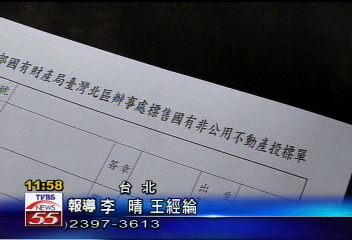 部國有財產局臺灣北區辦事處標售國有非公用不動產投標單
號
簽章
出生
11:58
台北
TVBS
NEWS
55
報導 李 晴 王經綸
2397-3613